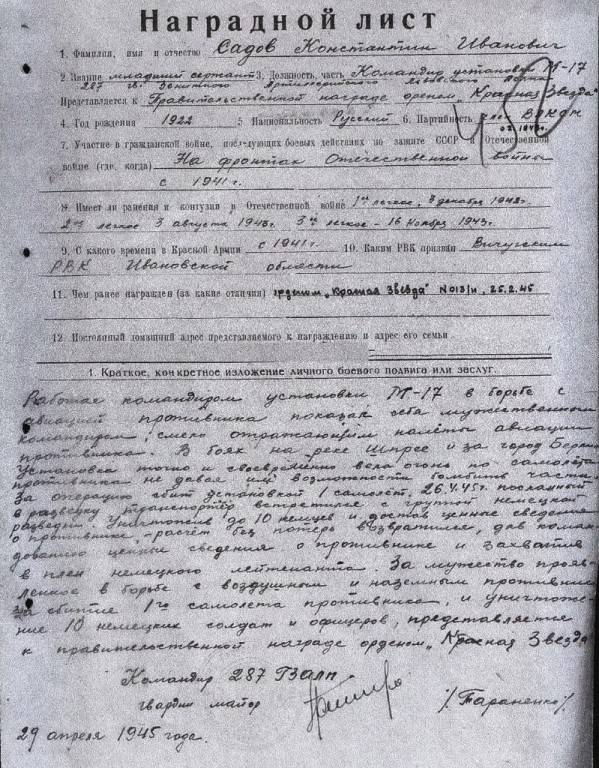 Наградной лист
1. Фамилия, имя и отчество Садов Константин Иванович
2. Звание младший сержант 3. Должность, часть Командир установки М-17
287 гв. Зенитного Артиллерийского полка
Представляется к Правительственной награде орденом „Красная Звезда"
4. Год рождения 1922 5. Национальность Русский 6. Партийность член ВЛКСМ
7. Участие в гражданской войне, последующих боевых действиях по защите СССР и Отечественной
войне (где, когда) На фронтах Отечественной войны
с 1941 г.
8. Имеет ли ранения и контузии в Отечественной войне 1ое легкое, 3 декабря 1942 г.
2ое легкое 3 августа 1943 г. 3ье легкое - 16 ноября 1943 г.
9. С какого времени в Красной Армии с 1941 г. 10. Каким РВК призван Вичугским
РВК Ивановской области
11. Чем ранее награжден (за какие отличия) орденом „Красная Звезда" №013/н, 25.2.45
12. Постоянный домашний адрес представляемого к награждению и адрес его семьи
1. Краткое, конкретное изложение личного боевого подвига или заслуг.
Работая командиром установки М-17 в борьбе с
авиацией противника показал себя мужественным
командиром, смело отражающим налёты авиации
противника. В боях на реке Шпрее и за город Берлин
Установка точно и своевременно вела огонь по самолётам
противника не давая им возможности бомбить части.
За операцию сбит установкой 1 самолёт. 26.4.45г. посланный
в разведку транспортёр встретился с группой немецкой
разведки. Уничтожив до 10 немцев и достав ценные сведения
о противнике, расчёт без потерь возвратился, дав коман-
дованию ценные сведения о противнике и захватив
в плен немецкого лейтенанта. За мужество прояв-
ленное в борьбе с воздушным и наземным противником
за сбитие 1го самолета противника, и уничтоже-
ние 10 немецких солдат и офицеров, представляется
к правительственной награде орденом „Красная Звезда"
Командир 287 ГЗАП
гвардии майор /Тараненко/
29 апреля 1945 года.